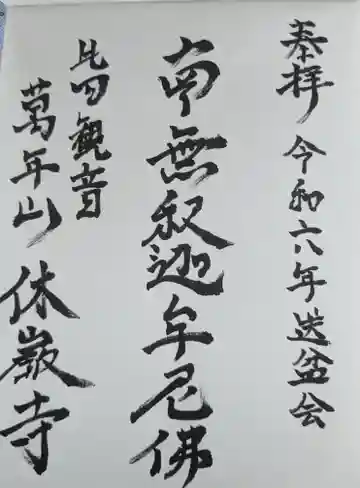 奉拝 令和六年送盆会
南無釈迦牟尼佛
岩田観音
萬年山 休巖寺